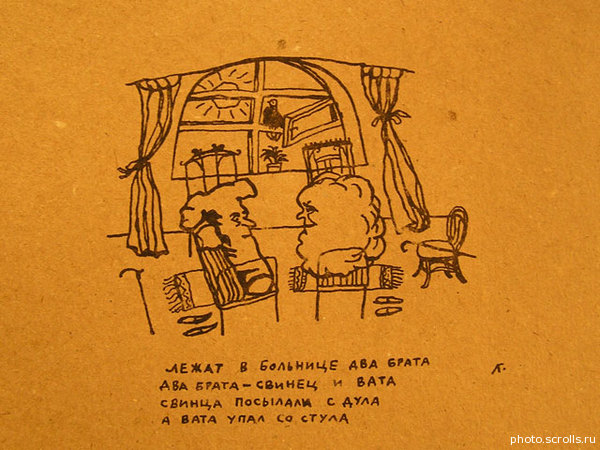 ЛЕЖАТ В БОЛЬНИЦЕ ДВА БРАТА
ДВА БРАТА-СВИНЕЦ И ВАТА
СВИНЦА ПОСЫЛАЛИ С ДУЛА
А ВАТА УПАЛ СО СТУЛА
photo.scrolls.ru